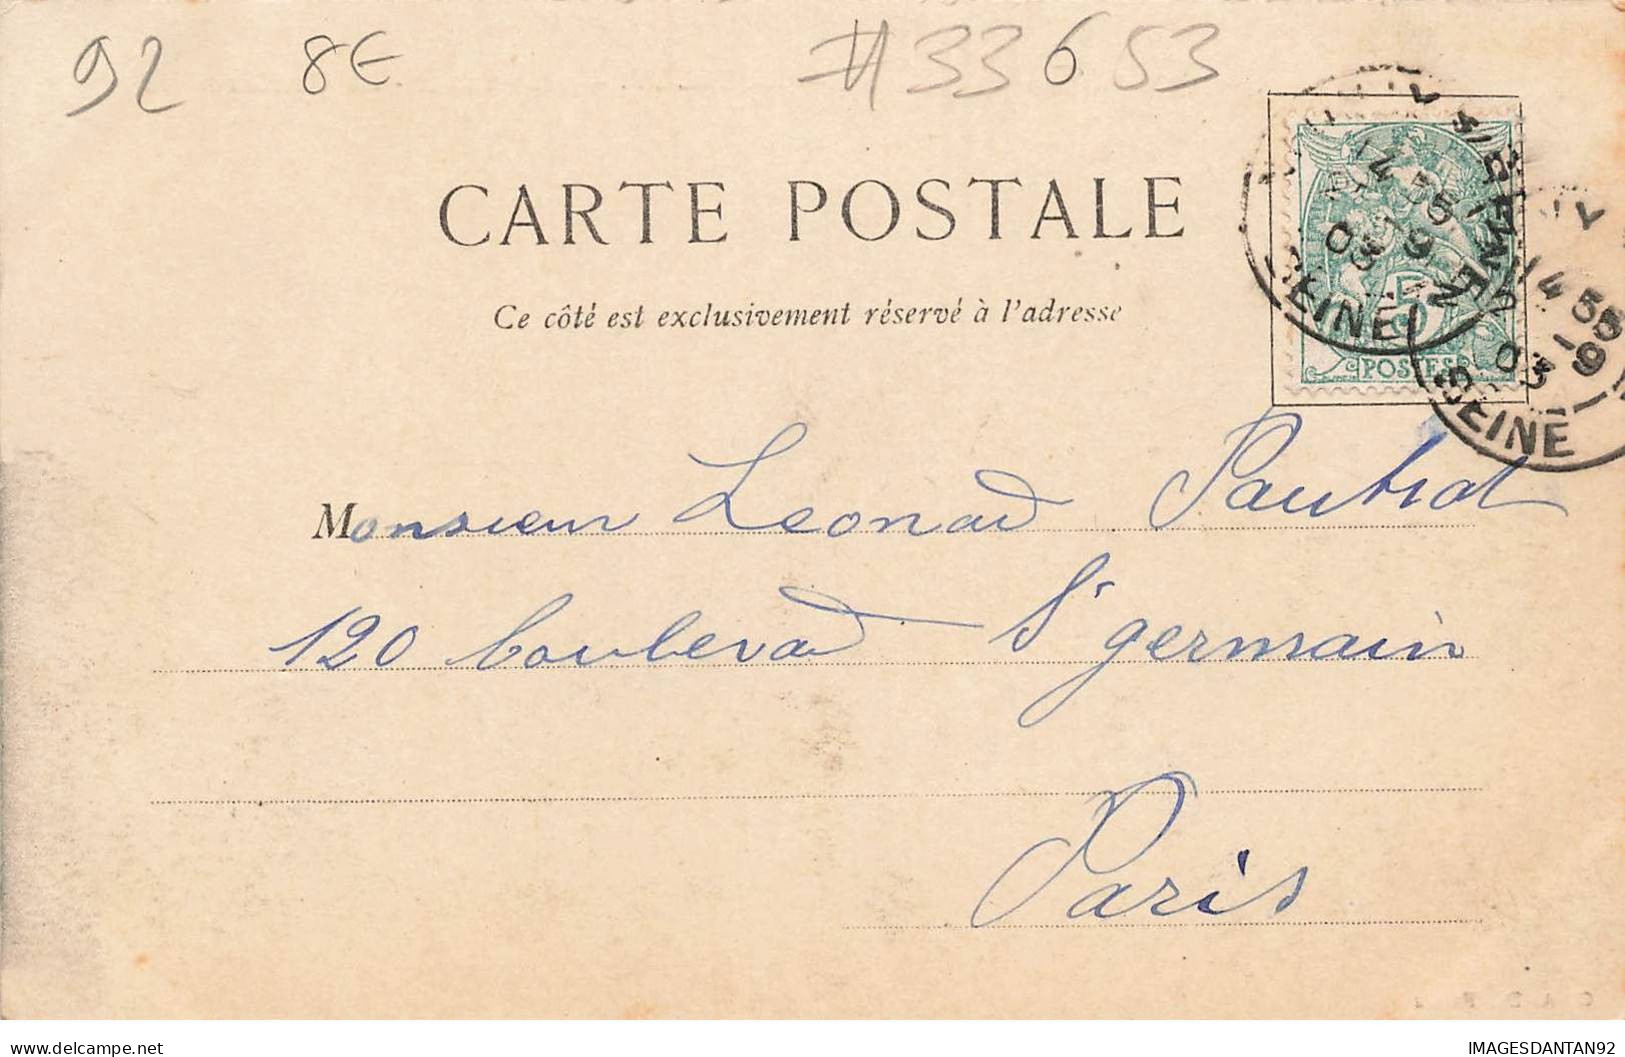 92 8€ #33653
CARTE POSTALE
Ce côté est exclusivement réservé à l'adresse
5
POSTES
SEINE
14 35
5-9
03
SEINE
Monsieur Leonard Pautrat
120 boulevard St germain
Paris
delcampe.net
IMAGESDANTAN92